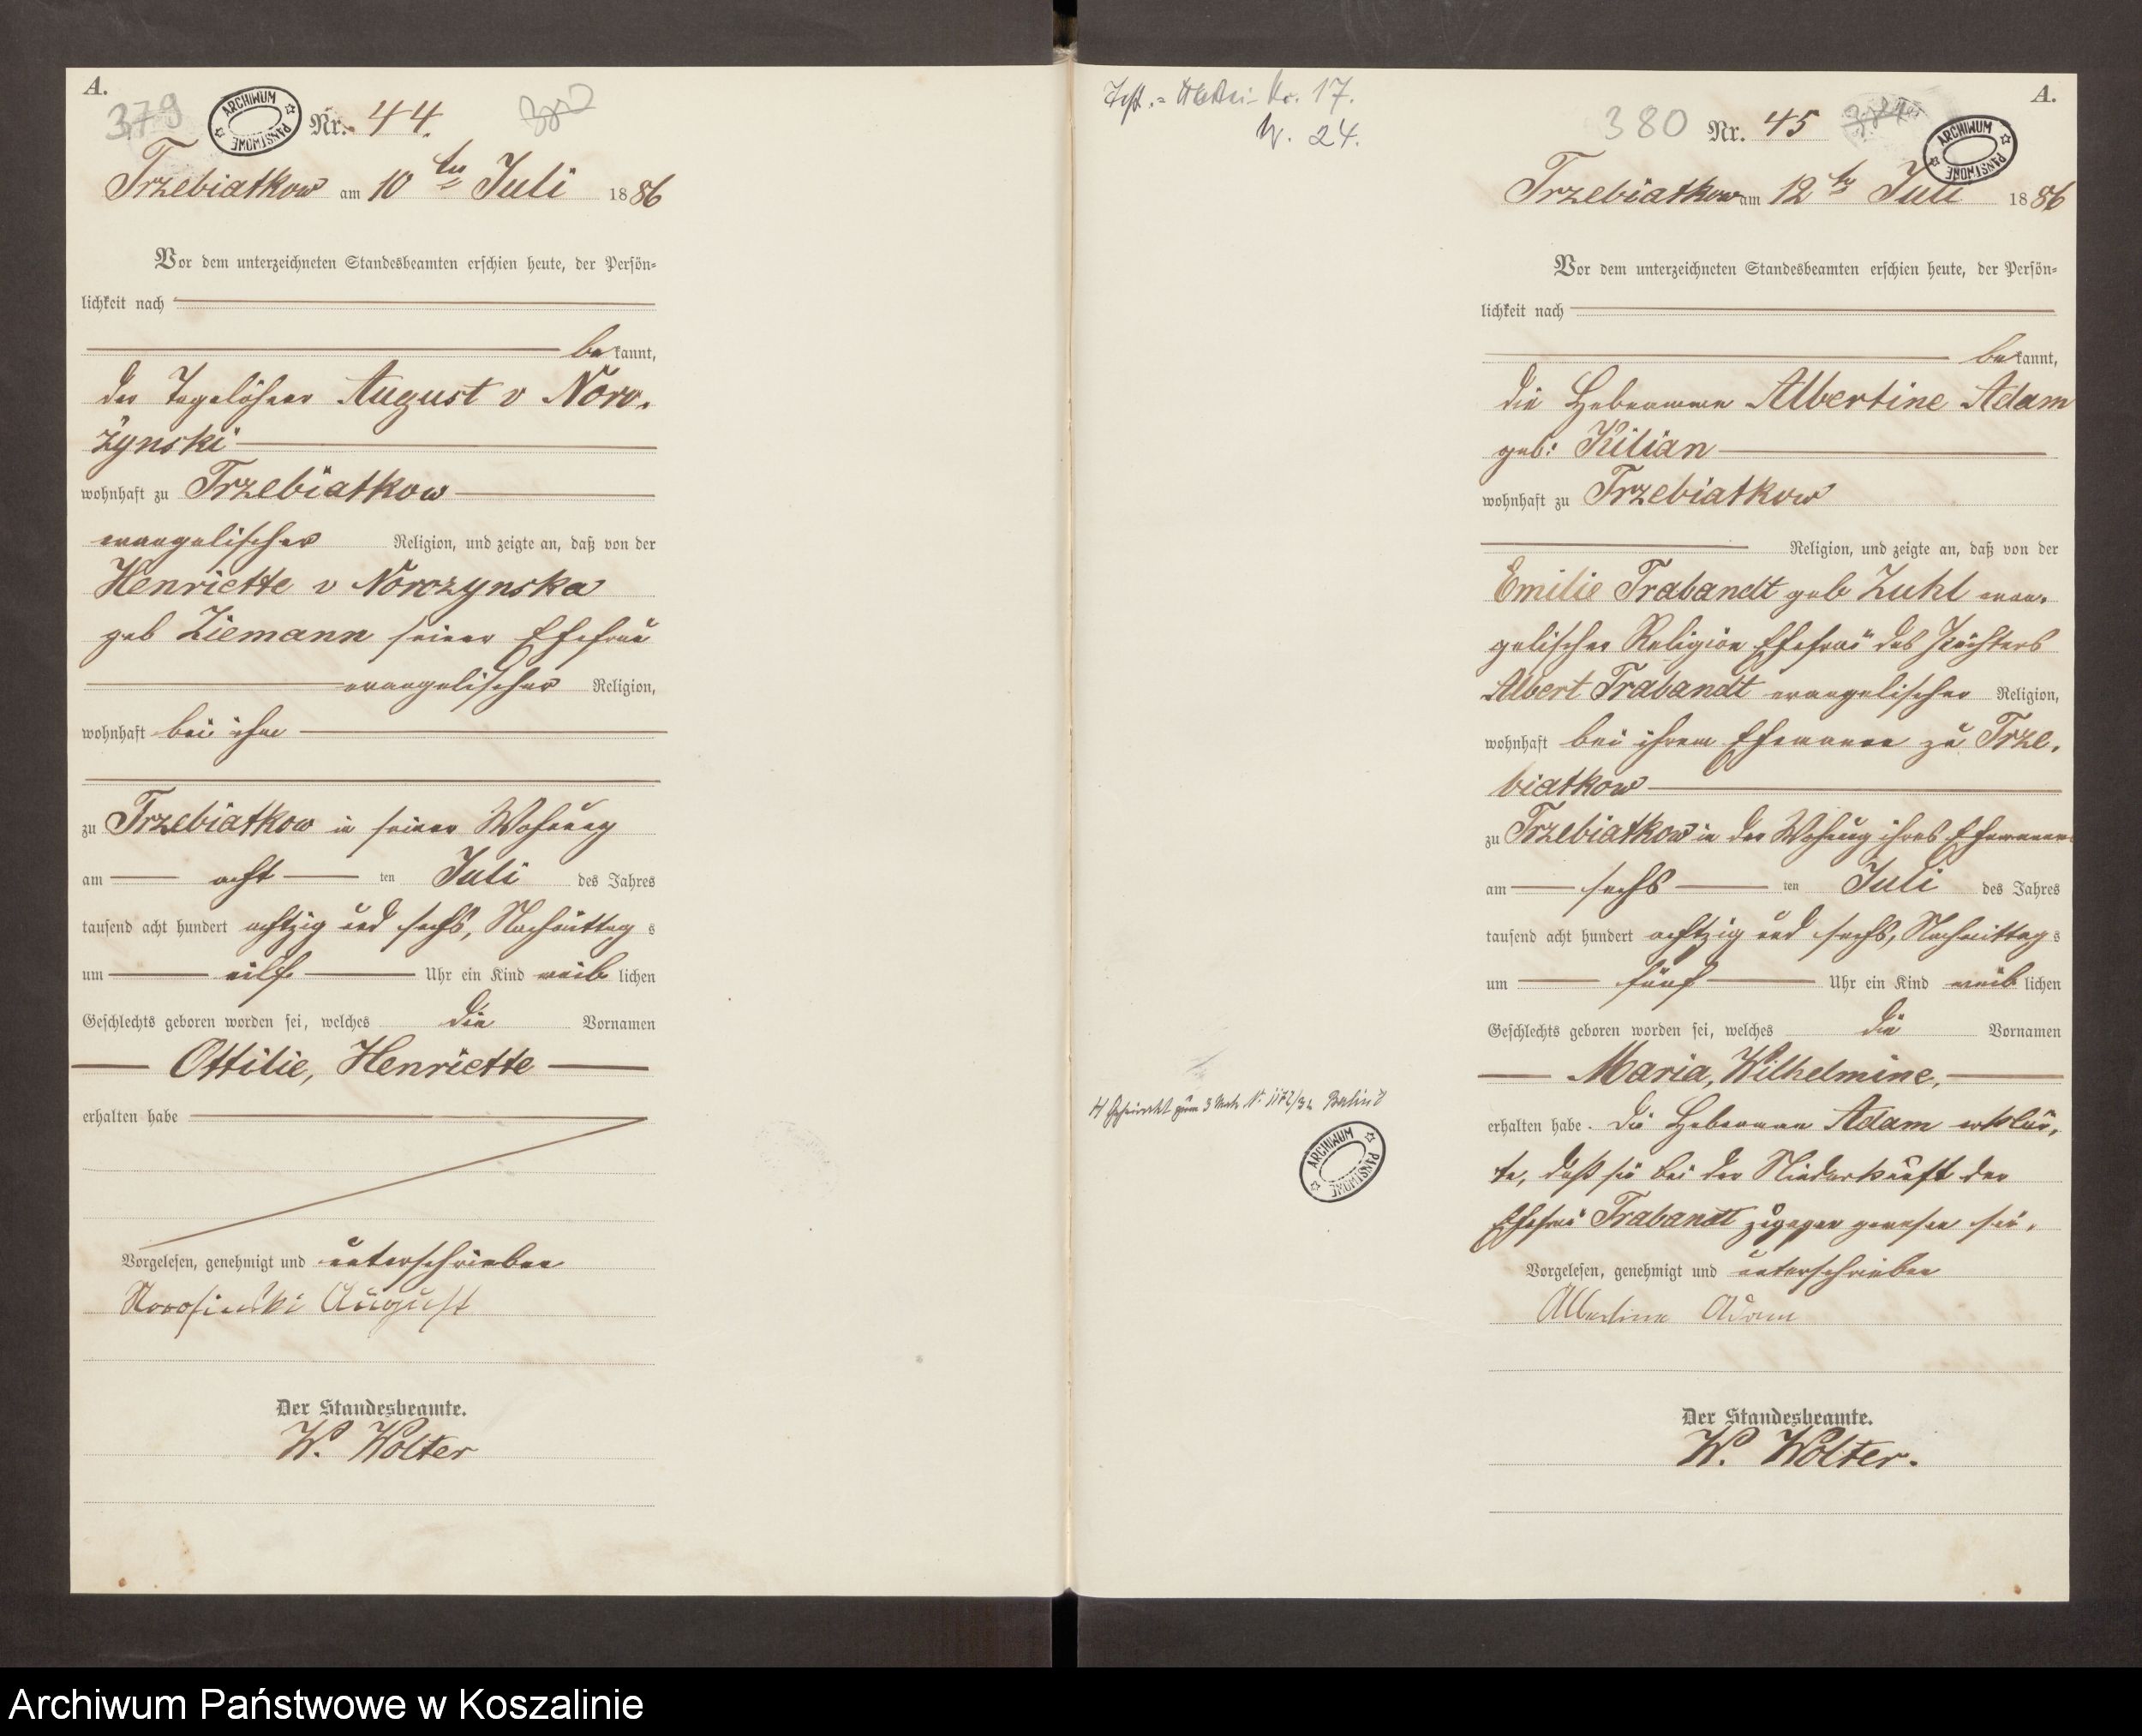 A.
379
ARCHIWUM PAŃSTWOWE
Nr. 44.
Trzebiatkow am 10ten Juli 1886
Vor dem unterzeichneten Standesbeamten erschien heute, der Persön-
lichkeit nach
bekannt,
der Tagelöhner August v Noro-
zynski
wohnhaft zu Trzebiatkow
evangelischer Religion, und zeigte an, daß von der
Henriette v Norozynska
geb Ziemann seiner Ehefrau
evangelischer Religion,
wohnhaft bei ihm
zu Trzebiatkow in seiner Wohnung
am acht ten Juli des Jahres
tausend acht hundert achtzig und sechs, Nachmittag s
um eilf Uhr ein Kind weib lichen
Geschlechts geboren worden sei, welches die Vornamen
Ottilie, Henriette
erhalten habe
Vorgelesen, genehmigt und unterschrieben
August
Der Standesbeamte.
W. Wolter
Nr. 17.
N. 24.
№ 1172/32 Berlin
ARCHIWUM PAŃSTWOWE
A.
380
Nr. 45
381
ARCHIWUM PAŃSTWOWE
Trzebiatkow am 12ten Juli 1886
Vor dem unterzeichneten Standesbeamten erschien heute, der Persön-
lichkeit nach
bekannt,
die Hebeamme Albertine Adam
geb: Kilian
wohnhaft zu Trzebiatkow
Religion, und zeigte an, daß von der
Emilie Trabandt geb Zuhl evan-
gelischer Religion Ehefrau des Pächters
Albert Trabandt evangelischer Religion,
wohnhaft bei ihrem Ehemann zu Trze-
biatkow
zu Trzebiatkow in der Wohnung ihres Ehemannes
am sechs ten Juli des Jahres
tausend acht hundert achtzig und sechs, Nachmittag s
um fünf Uhr ein Kind weib lichen
Geschlechts geboren worden sei, welches die Vornamen
Maria, Wilhelmine,
erhalten habe. Die Hebeamme Adam erklär-
te, daß sie bei der Niederkunft der
Ehefrau Trabandt zugegen gewesen sei.
Vorgelesen, genehmigt und unterschrieben
Albertine Adam
Der Standesbeamte.
W. Wolter.
Archiwum Państwowe w Koszalinie